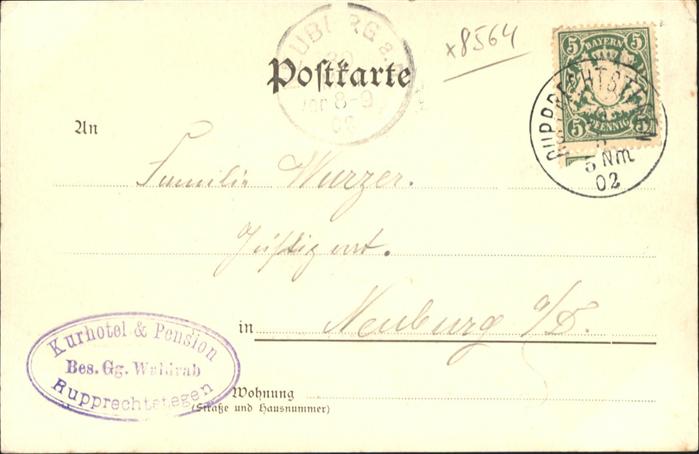 NEUBURG a.D.
Vor 8-9
02
x8564
Postkarte
5 BAYERN 5
5 PFENNIG 5
RUPPRECHTSTEGEN
5 NM
02
An
Familie Wurzer.
in Neuburg a/D.
Kurhotel & Pension
Bes. Gg. Waldrab
Rupprechtstegen
Wohnung
(Straße und Hausnummer)